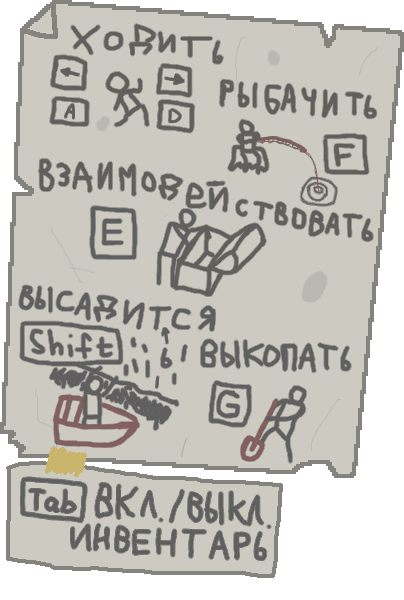 ХОДИТЬ
← →
A D
РЫБАЧИТЬ
F
ВЗАИМОВЕЙСТВОВАТЬ
E
ВЫСАДИТСЯ
Ь
Shift
ВЫКОПАТЬ
G
Tab ВКЛ./ВЫКЛ.
ИНВЕНТАРЬ